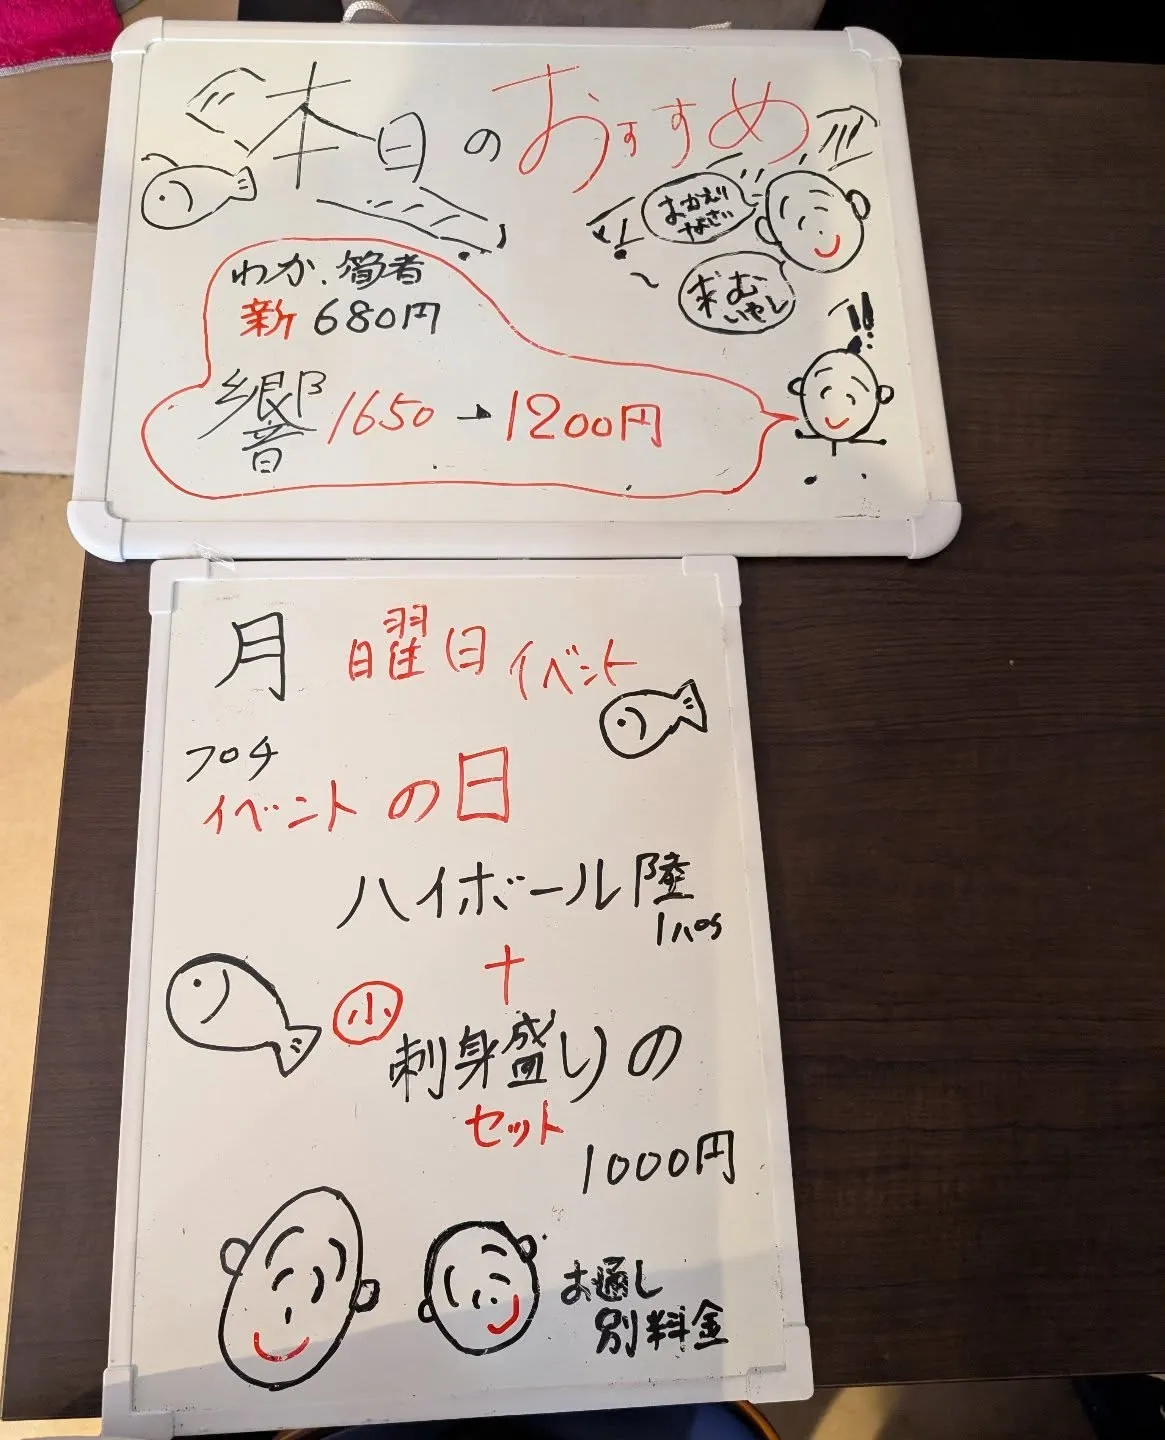 本日のおすすめ
おかえり
なさい
わか
者
新 680円
響 1650→1200円
月曜日イベント
プロチ
イベントの日
ハイボール陸
+
小
刺身盛りの
セット
1000円
お通し
別料金